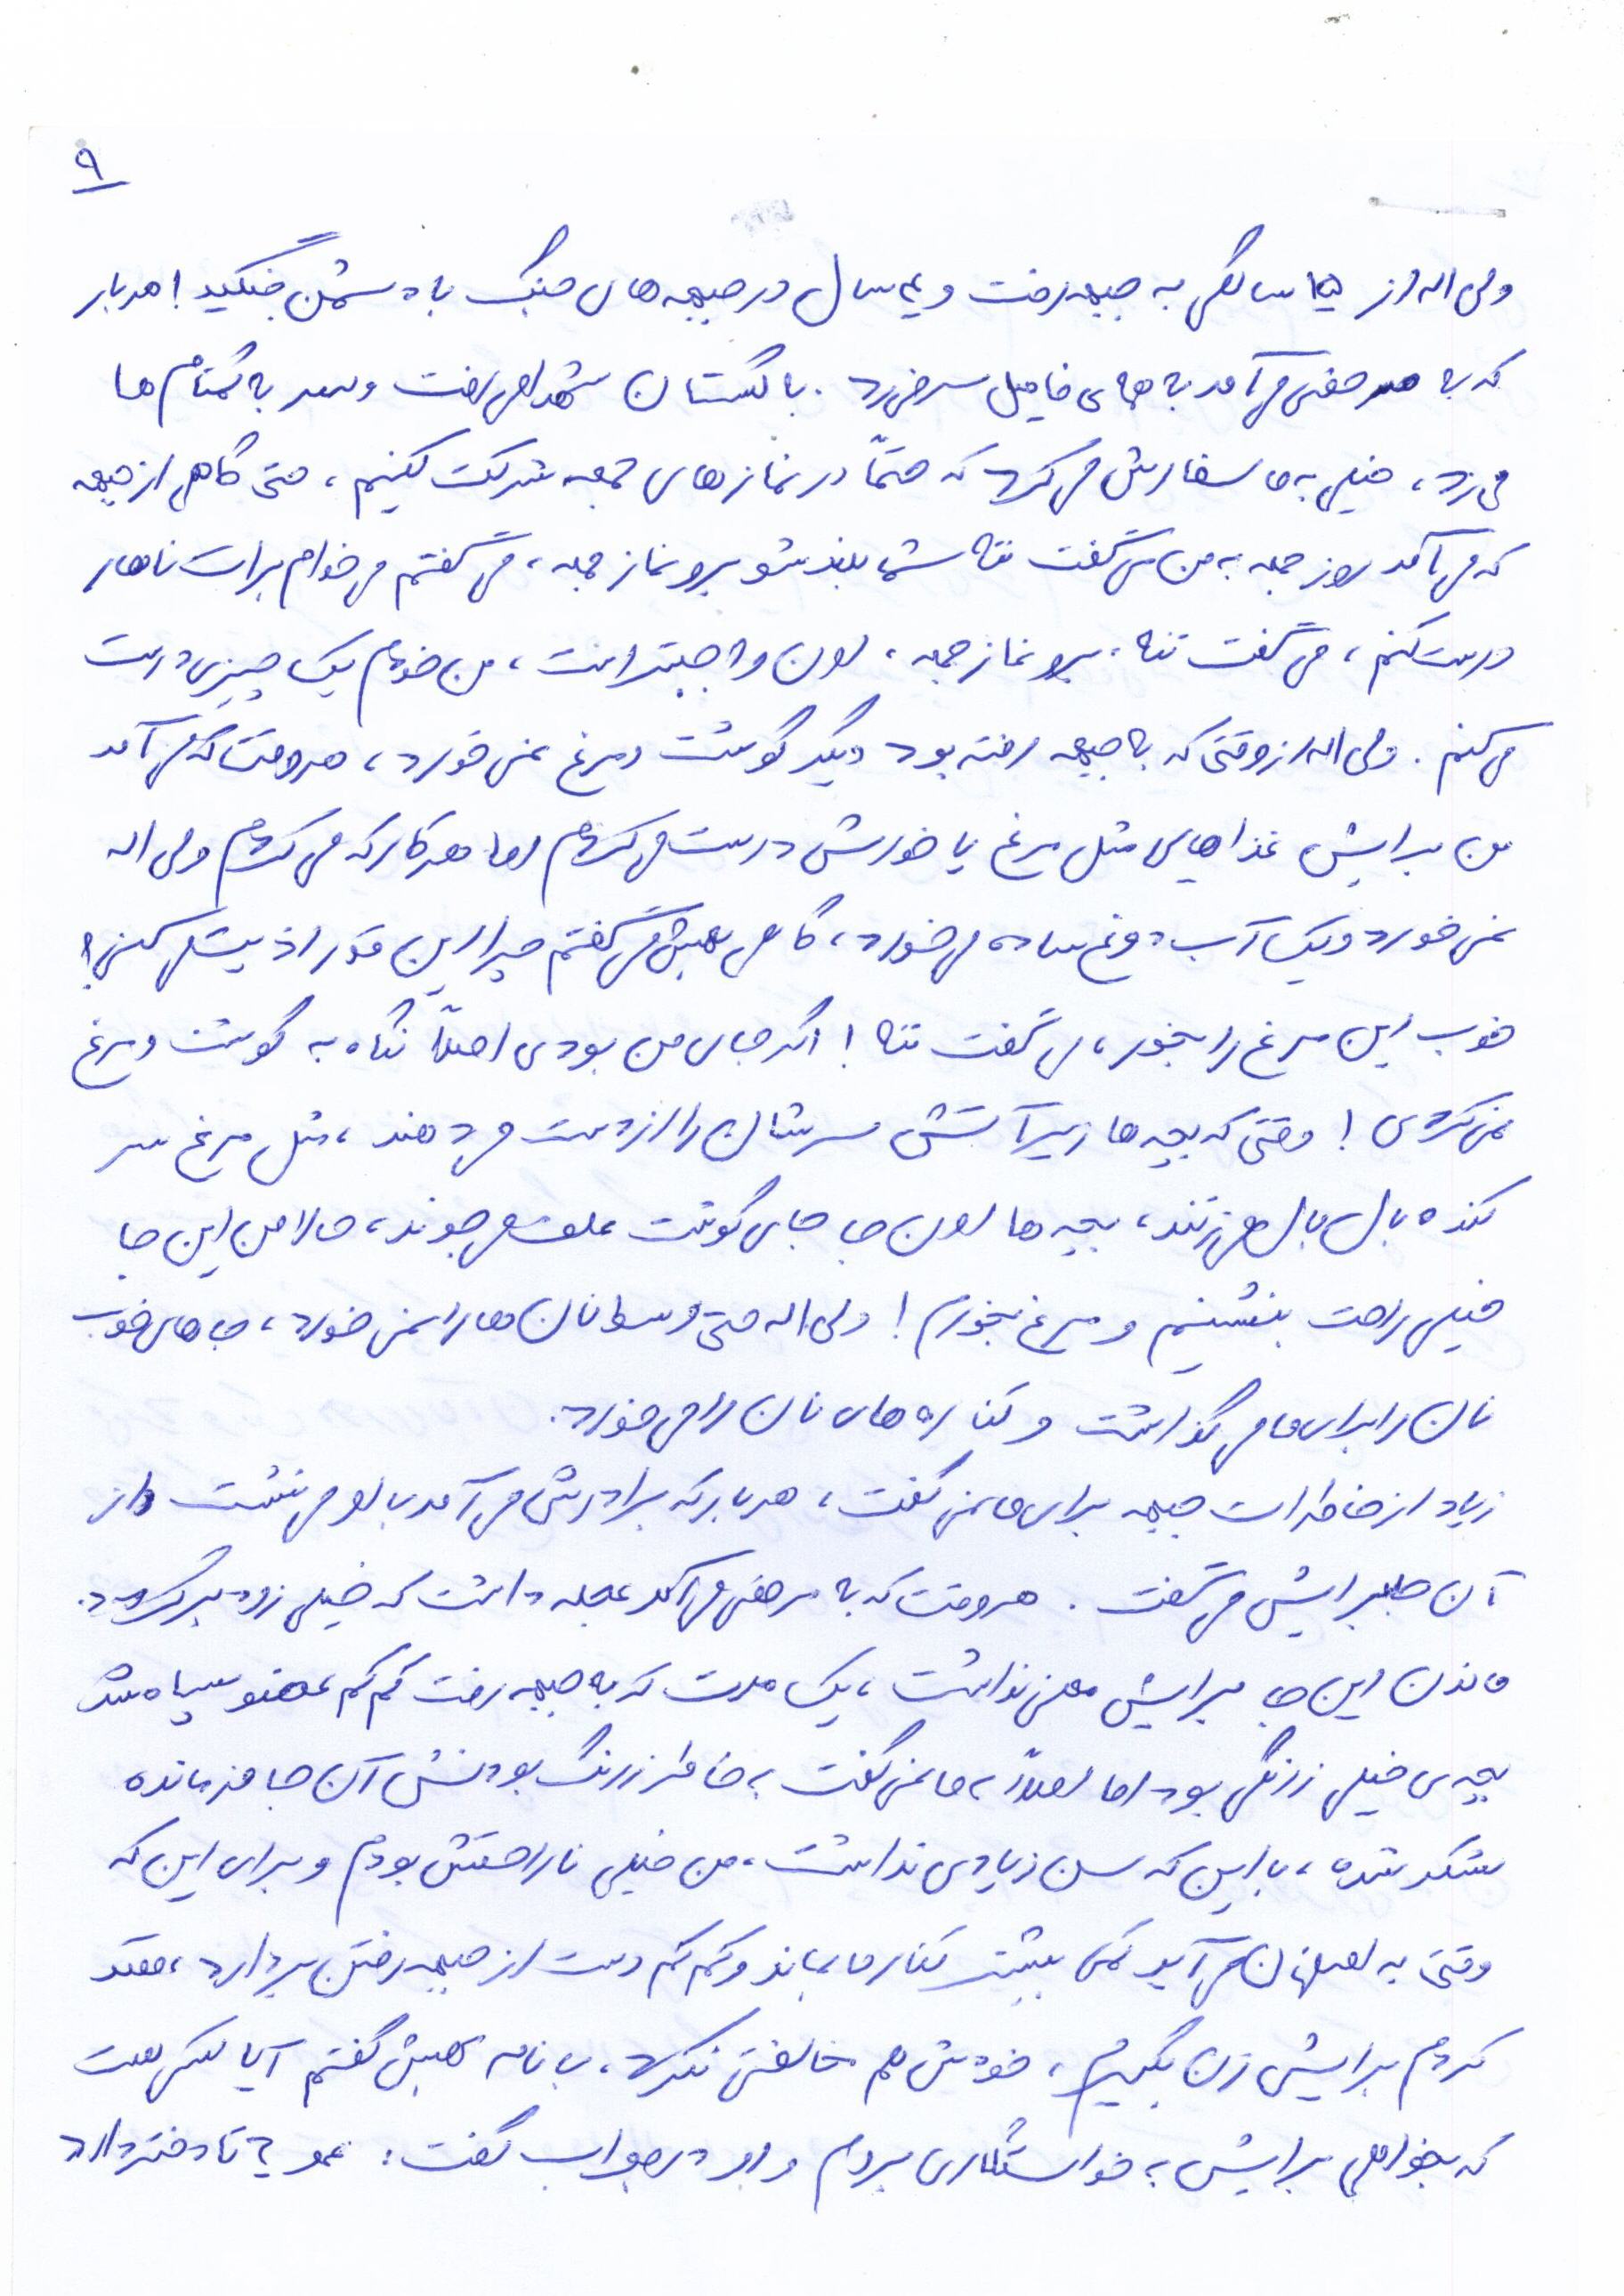 ۹
ولی اله از ۱۵ سالگی به جبهه رفت و ۴ سال در جبهه های جنگ با دشمن جنگید! هر بار
که به مرخصی می آمد به همه ی فامیل سر می زد. به گلستان شهدا می رفت و سر به گمنام ها
می زد، خیلی به ما سفارش می کرد که حتماً در نمازهای جمعه شرکت کنیم، حتی گاهی از جبهه
که می آمد روز جمعه به من می گفت ننه شما بلند شو برو نماز جمعه، می گفتم می خوام برات ناهار
درست کنم، می گفت ننه، برو نماز جمعه، اون واجبتر است، من خودم یک چیزی درست
می کنم. ولی اله از وقتی که به جبهه رفته بود دیگر گوشت و مرغ نمی خورد، هر وقت که می آمد
من برایش غذاهای مثل مرغ یا خورش درست می کردم اما هر کار که می کردم ولی اله
نمی خورد و یک آب دوغ ساده می خورد، گاهی بهش می گفتم چرا این قدر اذیت می کنی؟
خوب این مرغ را بخور، می گفت ننه! اگر جای من بودی اصلاً نگاه به گوشت و مرغ
نمی کردی! وقتی که بچه ها زیر آتش سرشان را از دست می دهند، مثل مرغ سر
کنده بال بال می زنند، بچه ها اون جا جای گوشت علف می جوند، حالا من این جا
خیلی راحت بنشینم و مرغ بخورم! ولی اله حتی وسط نان ها را نمی خورد، جاهای خوب
نان را برای ما می گذاشت و کناره های نان را می خورد.
زیاد از خاطرات جبهه برای ما نمی گفت، هر بار که برادرش می آمد با او می نشست و از
آن جا برایش می گفت. هر وقت که به مرخصی می آمد عجله داشت که خیلی زود برگردد.
ماندن این جا برایش معنی نداشت، یک مدت که به جبهه رفت کم کم عضو سپاه شد
بچه ی خیلی زرنگی بود اما اصلاً به ما نمی گفت به خاطر زرنگ بودنش آن جا فرمانده
لشکر شده، با این که سن زیادی نداشت، من خیلی ناراحتش بودم و برای این که
وقتی به اصفهان می آید کمی بیشتر کنار ما بماند و کم کم دست از جبهه رفتن بردارد، فکر
کردم برایش زن بگیرم، خودش هم مخالفتی نکرد، با نامه بهش گفتم آیا کسی هست
که بخواهی برایش به خواستگاری بروم و او در جواب گفت: عمو ۲ تا دختر دارد